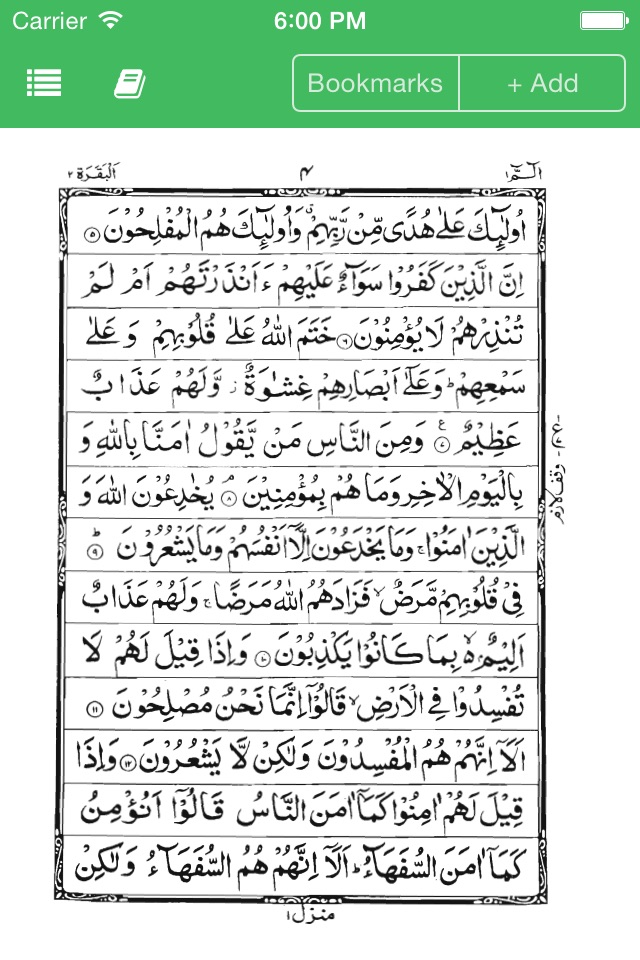 Carrier 6:00 PM
Bookmarks + Add
الٓمّٓ ١ ۴ اَلْبَقَرَة ٢
اُولٰٓئِكَ عَلٰى هُدًى مِّنْ رَّبِّهِمْ ۗ وَاُولٰٓئِكَ هُمُ الْمُفْلِحُوْنَ ۵
اِنَّ الَّذِيْنَ كَفَرُوْا سَوَآءٌ عَلَيْهِمْ ءَاَنْذَرْتَهُمْ اَمْ لَمْ
تُنْذِرْهُمْ لَا يُؤْمِنُوْنَ ۶ خَتَمَ اللّٰهُ عَلٰى قُلُوْبِهِمْ وَ عَلٰى
سَمْعِهِمْ ؕ وَعَلٰٓى اَبْصَارِهِمْ غِشٰوَةٌ ز وَّلَهُمْ عَذَابٌ
عَظِيْمٌ ۷ وَمِنَ النَّاسِ مَنْ يَّقُوْلُ اٰمَنَّا بِاللّٰهِ وَ
بِالْيَوْمِ الْاٰخِرِ وَمَا هُمْ بِمُؤْمِنِيْنَ ۘ ۸ يُخٰدِعُوْنَ اللّٰهَ وَ
الَّذِيْنَ اٰمَنُوْا ۚ وَمَا يَخْدَعُوْنَ اِلَّآ اَنْفُسَهُمْ وَمَا يَشْعُرُوْنَ ؕ ۹
فِيْ قُلُوْبِهِمْ مَّرَضٌ ۙ فَزَادَهُمُ اللّٰهُ مَرَضًا ۚ وَلَهُمْ عَذَابٌ
اَلِيْمٌ ۢ ۙ بِمَا كَانُوْا يَكْذِبُوْنَ ۱۰ وَاِذَا قِيْلَ لَهُمْ لَا
تُفْسِدُوْا فِي الْاَرْضِ ۙ قَالُوْٓا اِنَّمَا نَحْنُ مُصْلِحُوْنَ ۱۱
اَلَآ اِنَّهُمْ هُمُ الْمُفْسِدُوْنَ وَلٰكِنْ لَّا يَشْعُرُوْنَ ۱۲ وَاِذَا
قِيْلَ لَهُمْ اٰمِنُوْا كَمَآ اٰمَنَ النَّاسُ قَالُوْٓا اَنُؤْمِنُ
كَمَآ اٰمَنَ السُّفَهَآءُ ؕ اَلَآ اِنَّهُمْ هُمُ السُّفَهَآءُ وَلٰكِنْ
وقف لازم
منزل ۱